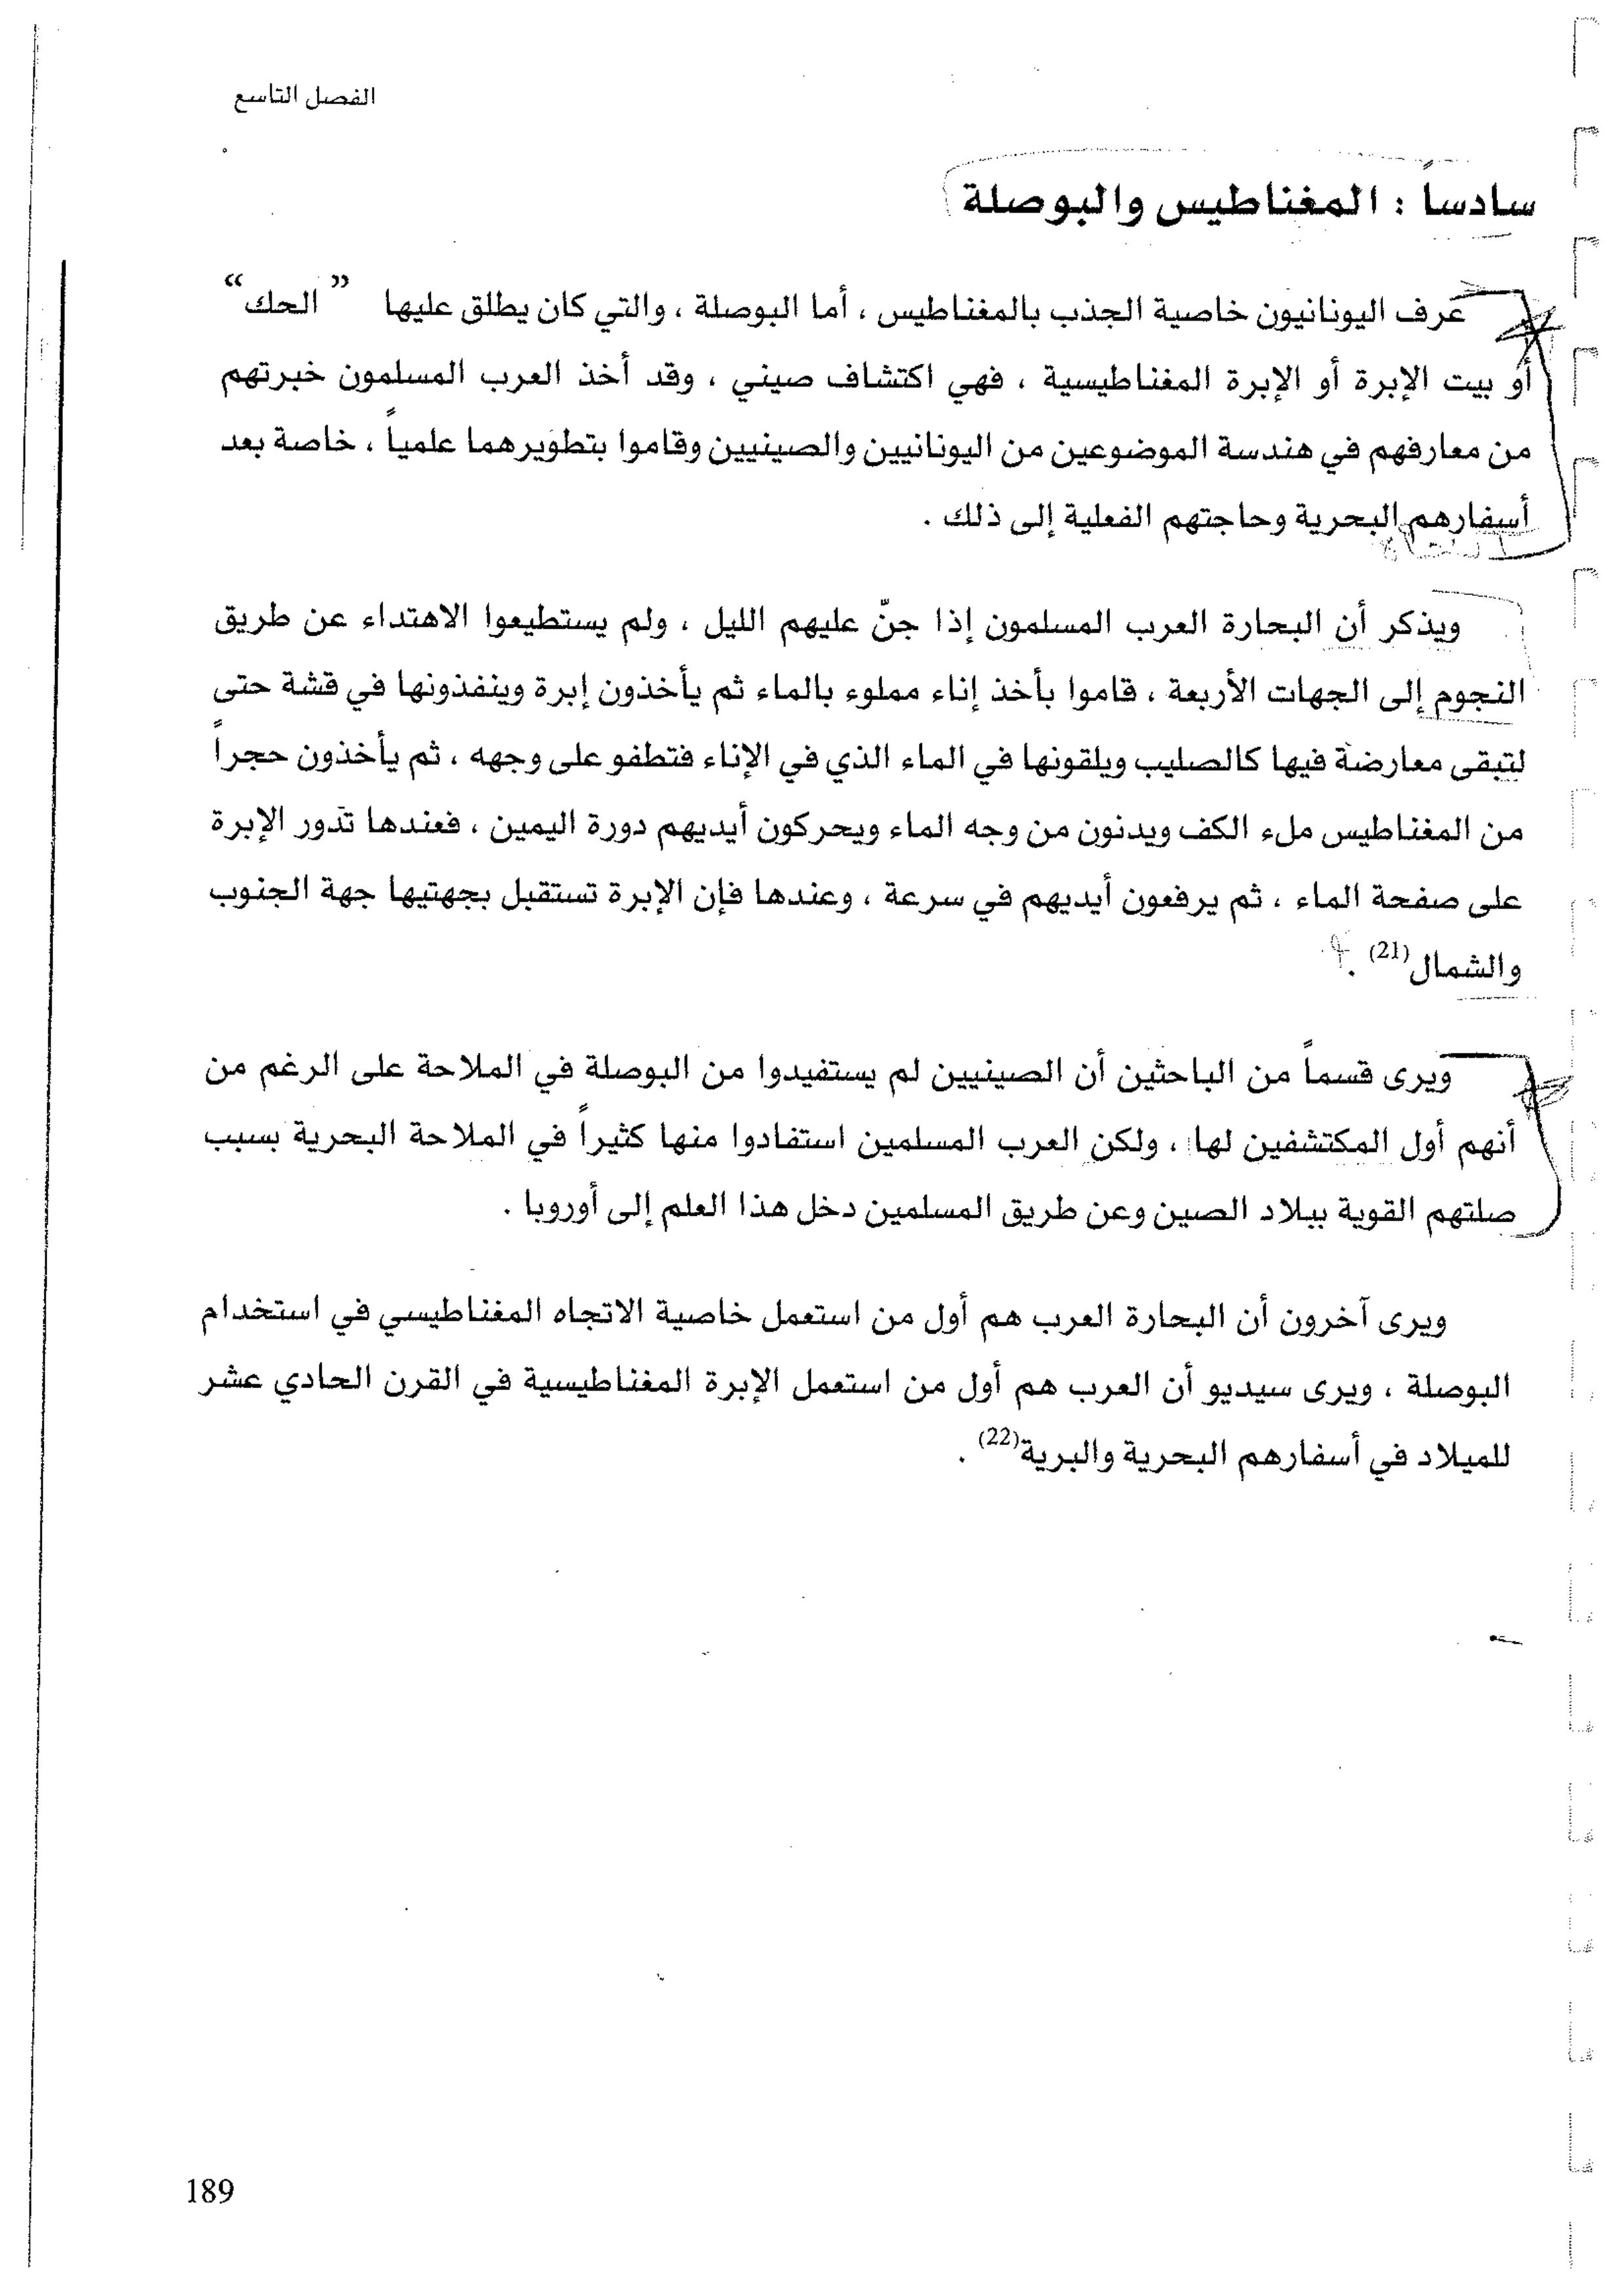 الفصل التاسع
سادساً : المغناطيس والبوصلة
عرف اليونانيون خاصية الجذب بالمغناطيس ، أما البوصلة ، والتي كان يطلق عليها " الحك "
أو بيت الإبرة أو الإبرة المغناطيسية ، فهي اكتشاف صيني ، وقد أخذ العرب المسلمون خبرتهم
من معارفهم في هندسة الموضوعين من اليونانيين والصينيين وقاموا بتطويرهما علمياً ، خاصة بعد
أسفارهم البحرية وحاجتهم الفعلية إلى ذلك .
ويذكر أن البحارة العرب المسلمون إذا جنّ عليهم الليل ، ولم يستطيعوا الاهتداء عن طريق
النجوم إلى الجهات الأربعة ، قاموا بأخذ إناء مملوء بالماء ثم يأخذون إبرة وينفذونها في قشة حتى
لتبقى معارضة فيها كالصليب ويلقونها في الماء الذي في الإناء فتطفو على وجهه ، ثم يأخذون حجراً
من المغناطيس ملء الكف ويدنون من وجه الماء ويحركون أيديهم دورة اليمين ، فعندها تدور الإبرة
على صفحة الماء ، ثم يرفعون أيديهم في سرعة ، وعندها فإن الإبرة تستقبل بجهتيها جهة الجنوب
والشمال(21) .
ويرى قسماً من الباحثين أن الصينيين لم يستفيدوا من البوصلة في الملاحة على الرغم من
أنهم أول المكتشفين لها ، ولكن العرب المسلمين استفادوا منها كثيراً في الملاحة البحرية بسبب
صلتهم القوية ببلاد الصين وعن طريق المسلمين دخل هذا العلم إلى أوروبا .
ويرى آخرون أن البحارة العرب هم أول من استعمل خاصية الاتجاه المغناطيسي في استخدام
البوصلة ، ويرى سيديو أن العرب هم أول من استعمل الإبرة المغناطيسية في القرن الحادي عشر
للميلاد في أسفارهم البحرية والبرية(22) .
189